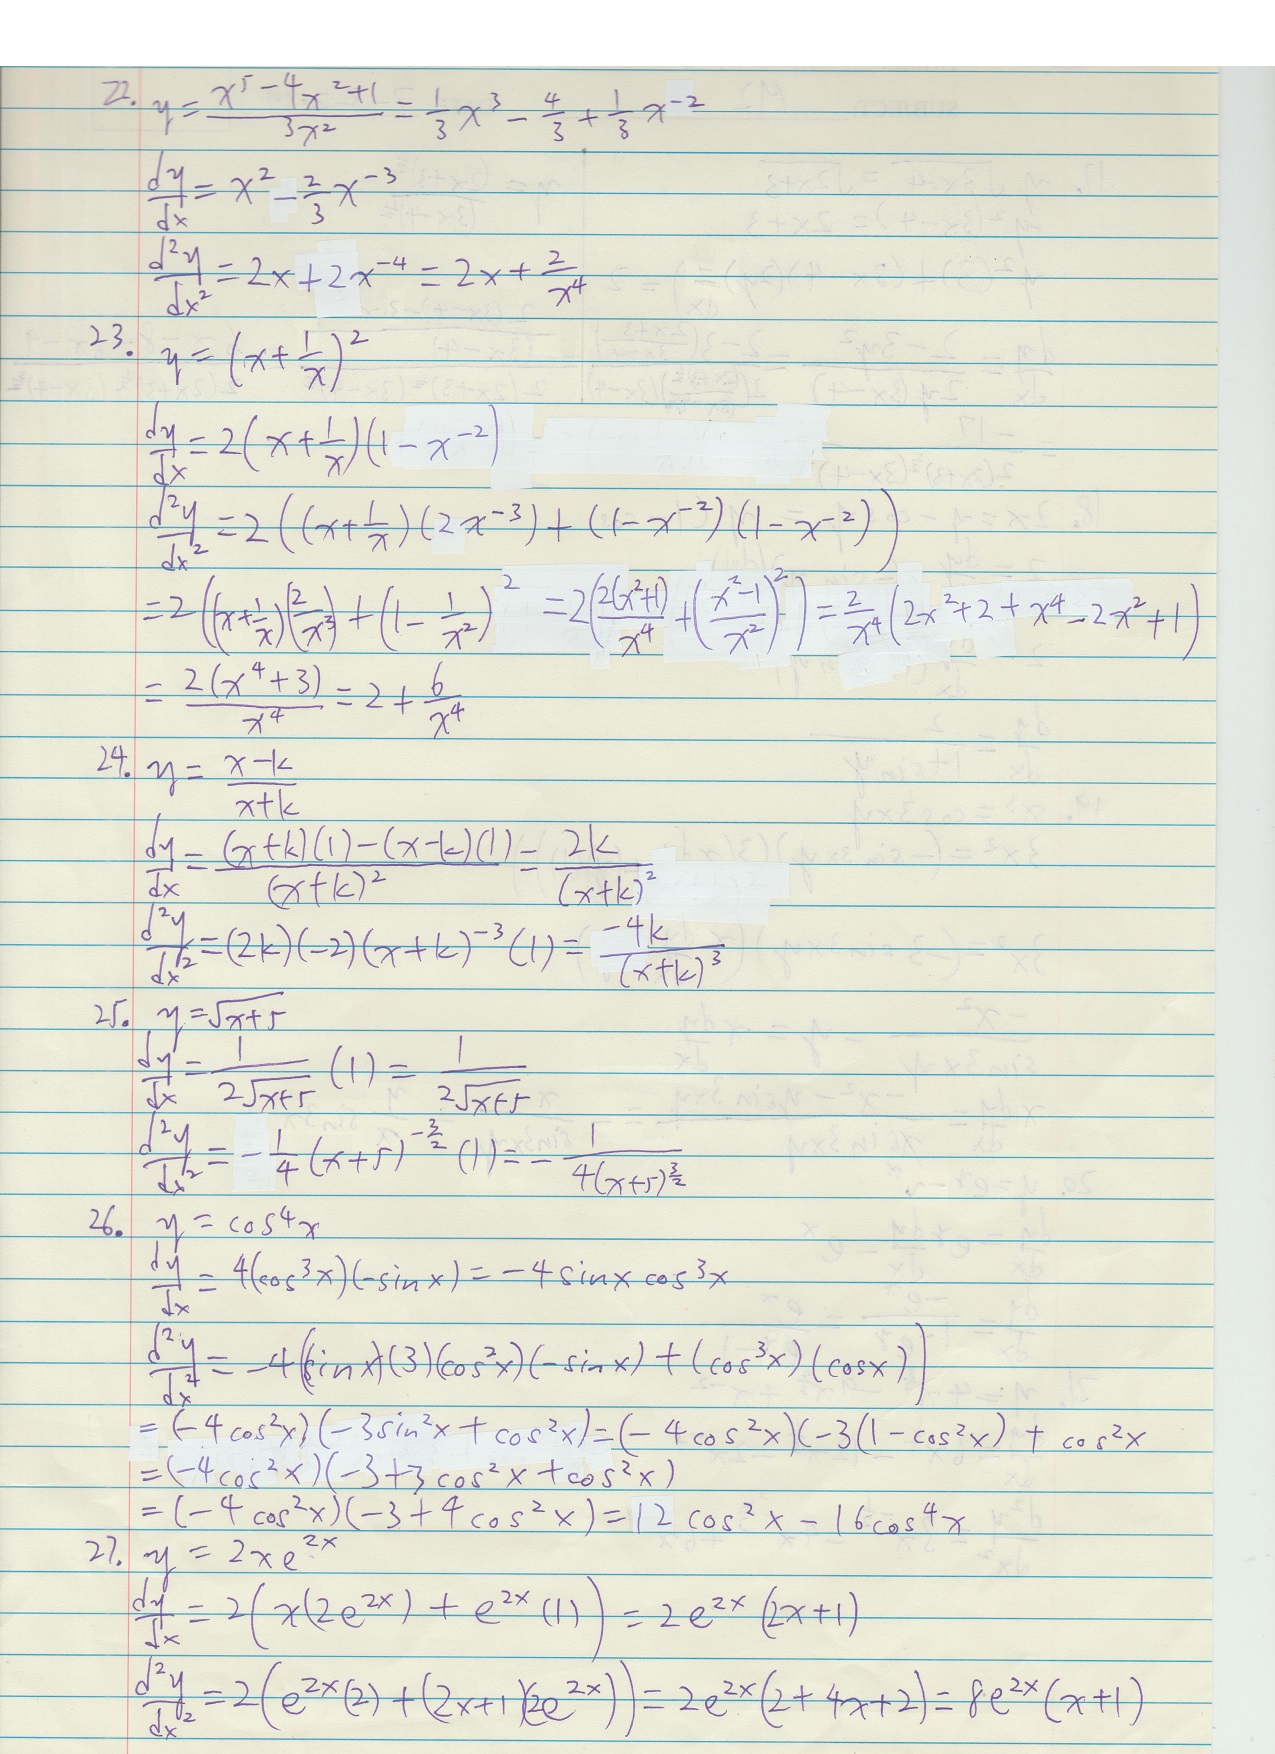 22. y = (x^5 - 4x^2 + 1)/(3x^2) = 1/3 x^3 - 4/3 + 1/3 x^-2
dy/dx = x^2 - 2/3 x^-3
d^2y/dx^2 = 2x + 2x^-4 = 2x + 2/x^4
23. y = (x + 1/x)^2
dy/dx = 2(x + 1/x)(1 - x^-2)
d^2y/dx^2 = 2((x + 1/x)(2x^-3) + (1 - x^-2)(1 - x^-2))
= 2((x + 1/x)(2/x^3) + (1 - 1/x^2)^2 = 2(2(x^2+1)/x^4 + ((x^2-1)/x^2)^2) = 2/x^4 (2x^2 + 2 + x^4 - 2x^2 + 1)
= 2(x^4+3)/x^4 = 2 + 6/x^4
24. y = (x-k)/(x+k)
dy/dx = ((x+k)(1) - (x-k)(1))/(x+k)^2 = 2k/(x+k)^2
d^2y/dx^2 = (2k)(-2)(x+k)^-3 (1) = -4k/(x+k)^3
25. y = √(x+5)
dy/dx = 1/(2√(x+5)) (1) = 1/(2√(x+5))
d^2y/dx^2 = -1/4 (x+5)^(-3/2) (1) = - 1/(4(x+5)^(3/2))
26. y = cos^4 x
dy/dx = 4(cos^3 x)(-sin x) = -4 sin x cos^3 x
d^2y/dx^2 = -4((sin x)(3)(cos^2 x)(-sin x) + (cos^3 x)(cos x))
= (-4cos^2 x)(-3sin^2 x + cos^2 x) = (-4cos^2 x)(-3(1 - cos^2 x) + cos^2 x
= (-4cos^2 x)(-3 + 3cos^2 x + cos^2 x)
= (-4cos^2 x)(-3 + 4cos^2 x) = 12cos^2 x - 16cos^4 x
27. y = 2xe^2x
dy/dx = 2(x(2e^2x) + e^2x (1)) = 2e^2x (2x+1)
d^2y/dx^2 = 2(e^2x (2) + (2x+1)(2e^2x)) = 2e^2x (2 + 4x + 2) = 8e^2x (x+1)